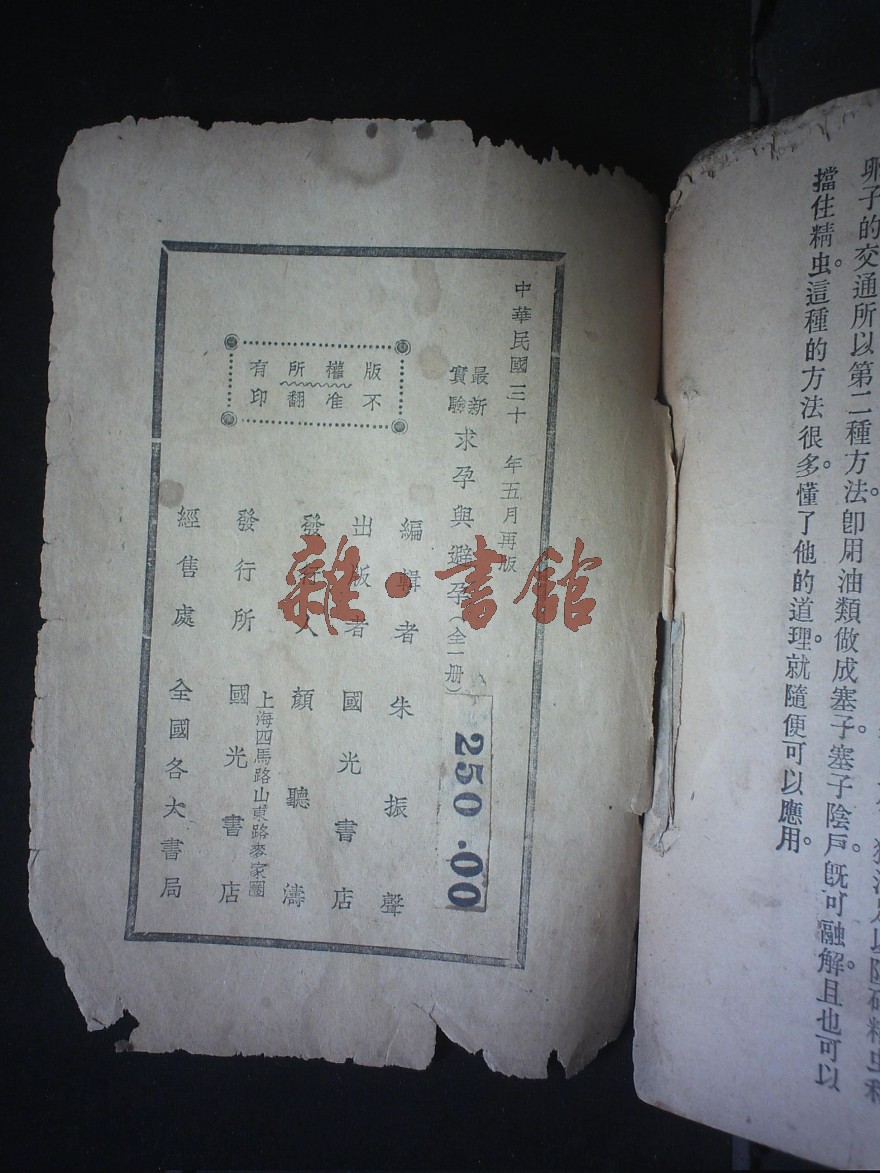 卵子的交通所以第二種方法。卽用油類做成塞子。塞子陰戶。旣可融解。且也可以
擋住精虫。這種的方法很多。懂了他的道理。就隨便可以應用。
中華民國三十　年五月再版
最新實驗 求孕與避孕（全一册）
250.00
編輯者 朱振聲
出版者 國光書店
發行人 顏聽濤
上海四馬路山東路麥家圈
發行所 國光書店
經售處 全國各大書局
版權所有
不准翻印
雜·書館